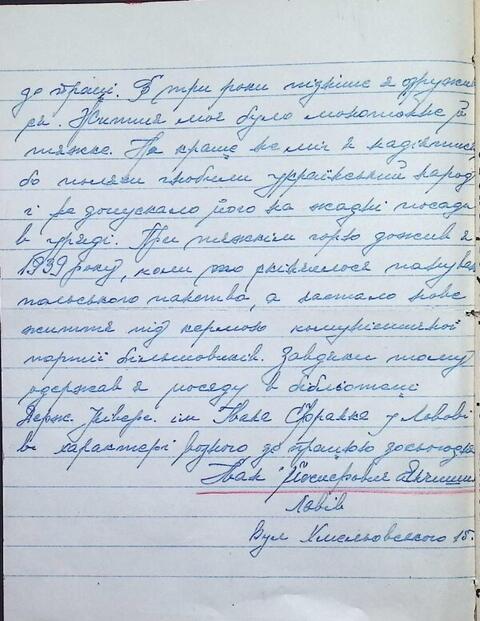 до праці. В три роки пізніше я одружив
ся. Життя моє було монотонне й
тяжке. На краще не міг я надіятися
бо поляки гнобили український народ
і не допускало його на жадні посади
в уряді. При тяжкім горю дожив я
1939 року, коли то скінчилося панування
польського панства, а настало нове
життя під кермою комуністичної
партії більшовиків. Завдяки тому
одержав я посаду в бібліотеці
Держ. Універс. ім Івана Франка у Львові
в характері возного де працюю
Іван Йосифович
Львів
Вул 15.